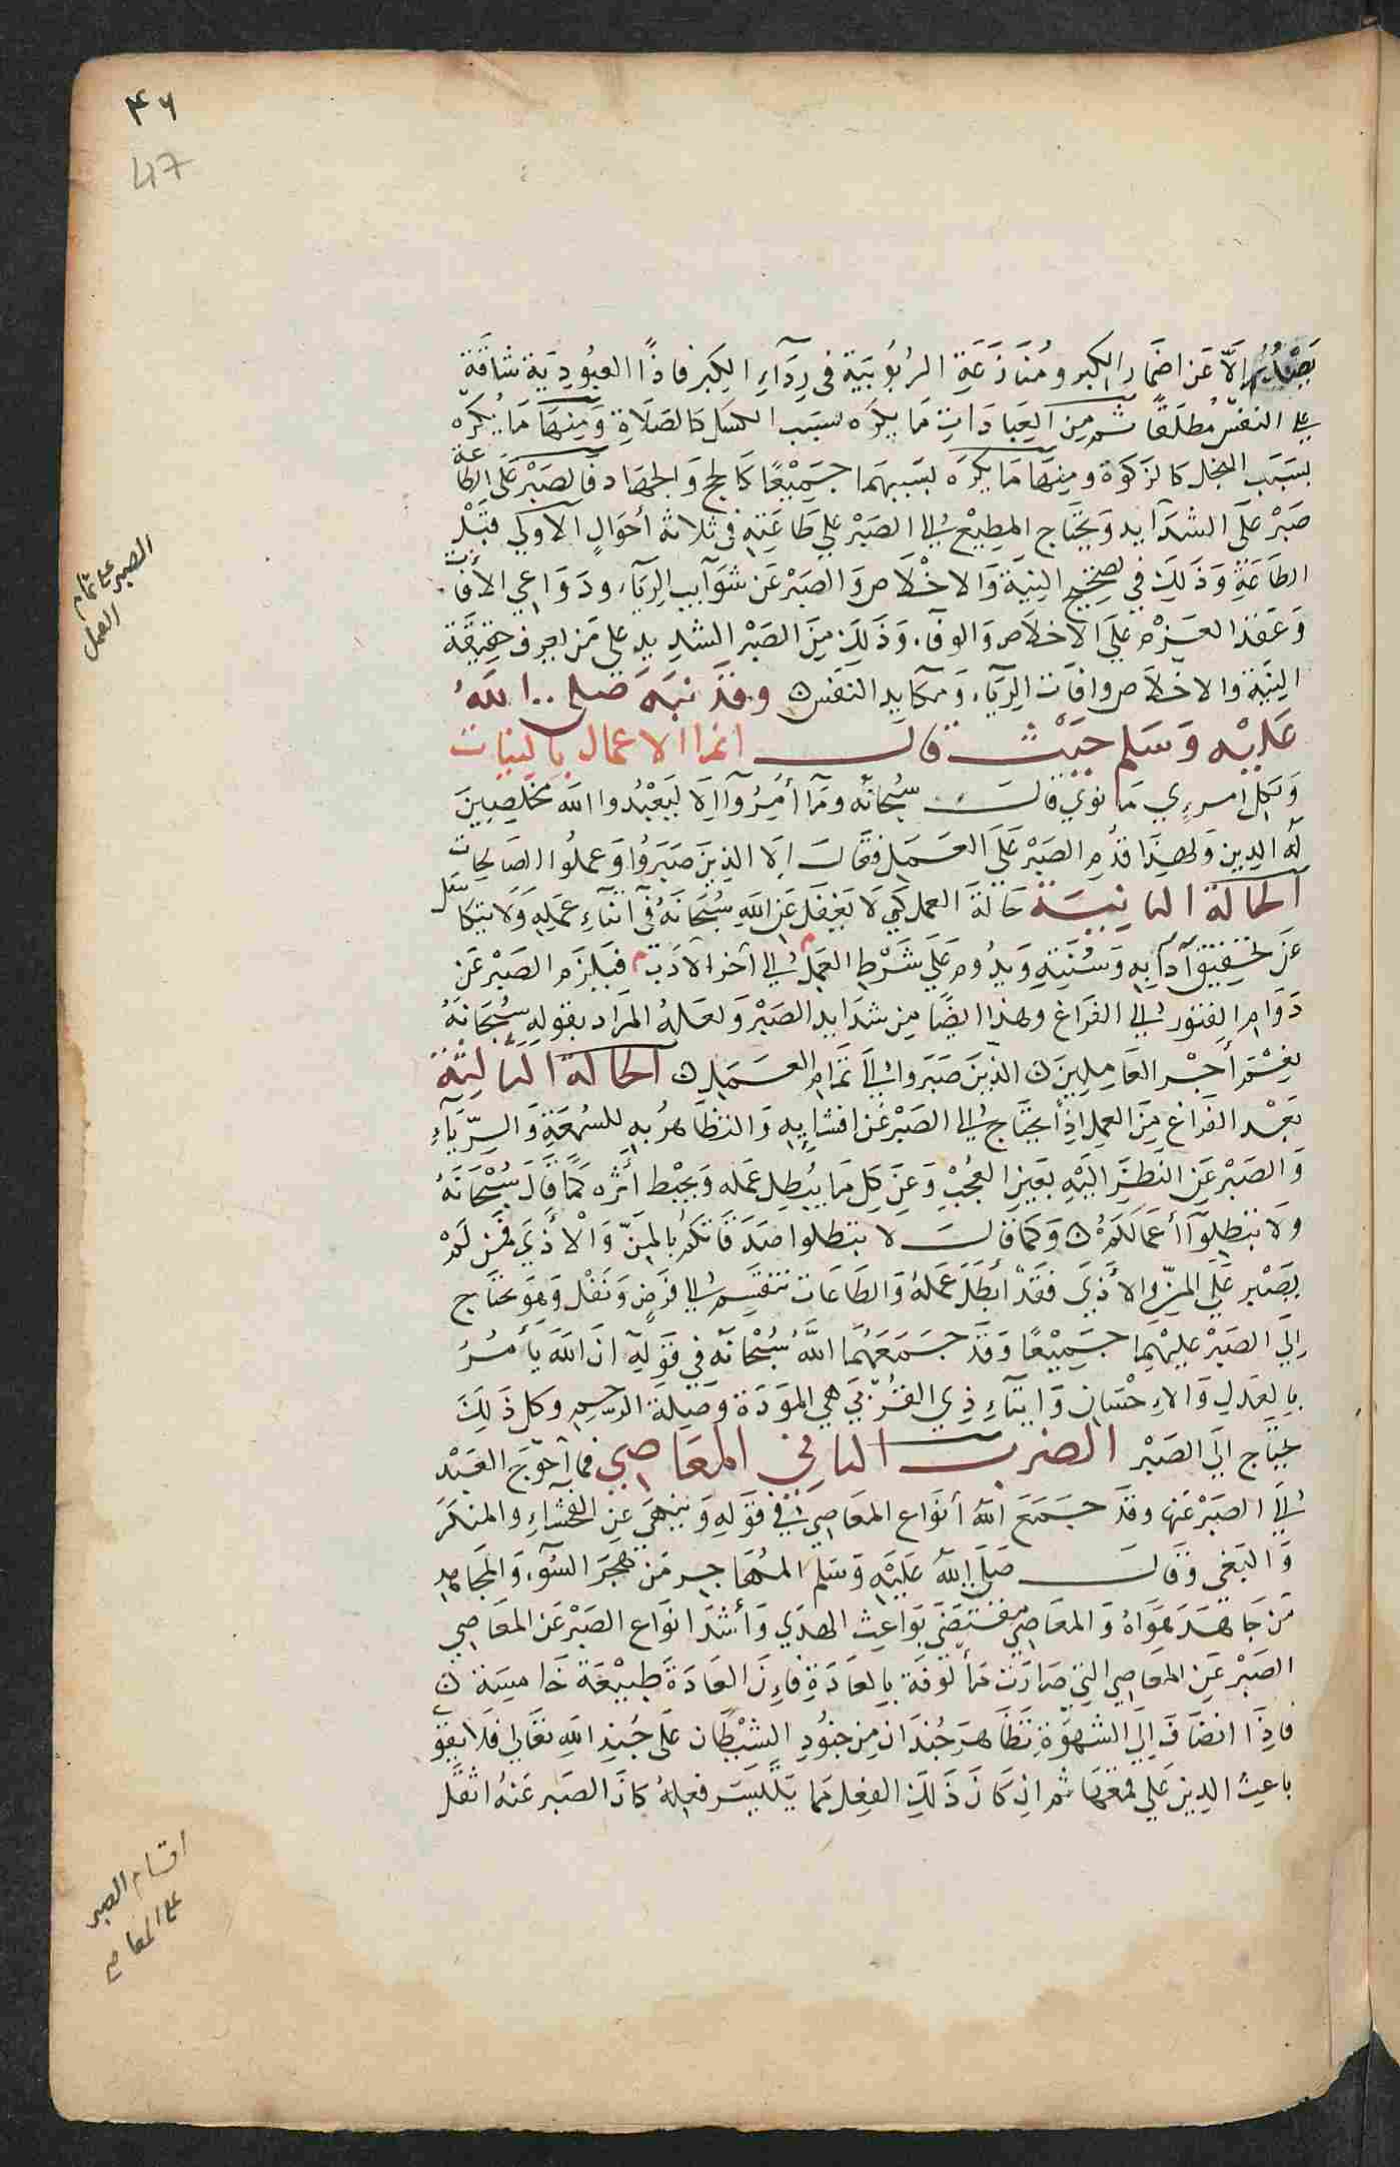 ٤٦
47
يصدر الا عن اضمار الكبر ومنازعة الربوبية في ردآء الكبر فاذًا العبودية شاقة
على النفس مطلقًا ثم من العبادات ما يكره بسبب الكسل كالصلاة ومنها ما يكره
بسبب البخل كالزكوة ومنها ما يكره بسببهما جميعًا كالحج والجهاد فالصبر على الطاعة
صبر على الشدآيد ويحتاج المطيع الى الصبر على طاعته في ثلاثة أحوال الأولى قبل
الطاعة وذلك في تصحيح النية والاخلاص والصبر عن شوآيب الريآء ودواعي الأفات
وعقد العزم على الاخلاص والوفآء وذلك من الصبر الشديد على من يعرف حقيقة
النية والاخلاص وافات الريآء ومكايد النفس وقد نبه صلى الله
عليه وسلم حيث قال انما الاعمال بالنيات
ولكل امرىء ما نوى قال سبحانه ومآ أمروآ الا ليعبدوا الله مخلصين
له الدين ولهذا قدم الصبر على العمل فقال الا الذين صبروا وعملوا الصالحات
الحالة الثانية حالة العمل كي لا يغفل عن الله سبحانه في اثنآء عمله ولا يتكاسل
عن تحقيق آدآبه وسننه ويدوم على شرط العمل الى آخر الأدب فيلزم الصبر عن
دوام الفتور الى الفراغ وهذا ايضًا من شدايد الصبر ولعله المراد بقوله سبحانه
نعم أجر العاملين الذين صبروا الى تمام العمل الحالة الثالثة
بعد الفراغ من العمل اذ يحتاج الى الصبر عن افشايه والتظاهر به للسمعة والريآء
والصبر عن النظر اليه بعين العجب وعن كل ما يبطل عمله ويحبط أثره كما قال سبحانه
ولا تبطلوآ أعمالكم وكما قال لا تبطلوا صدقاتكم بالمن والأذى فمن لم
يصبر على المن والأذى فقد أبطل عمله والطاعات تنقسم الى فرض ونفل وهو يحتاج
إلى الصبر عليهما جميعًا وقد جمعهما الله سبحانه في قوله ان الله يأمر
بالعدل والإحسان وايتآء ذي القربى هي المودة وصلة الرحم وكل ذلك
يحتاج الى الصبر الضرب الثاني المعاصي فما أحوج العبد
الى الصبر عنها وقد جمع الله أنواع المعاصي في قوله وينهى عن الفحشاء والمنكر
والبغي وقال صلى الله عليه وسلم المهاجر من هجر السوء والمجاهد
من جاهد هواه والمعاصي مقتضى بواعث الهدي وأشد انواع الصبر عن المعاصي
الصبر عن المعاصي التي صارت مألوفة بالعادة فإن العادة طبيعة خامسة
فاذا انضاف الى الشهوة تظاهر جندان من جنود الشيطان على جند الله تعالى فلا يقوى
باعث الدين على قمعها ثم ان كان ذلك الفعل مما يتيسر فعله كان الصبر عنه اثقل
الصبر على تمام
العمل
اقسام الصبر
على المعاصي